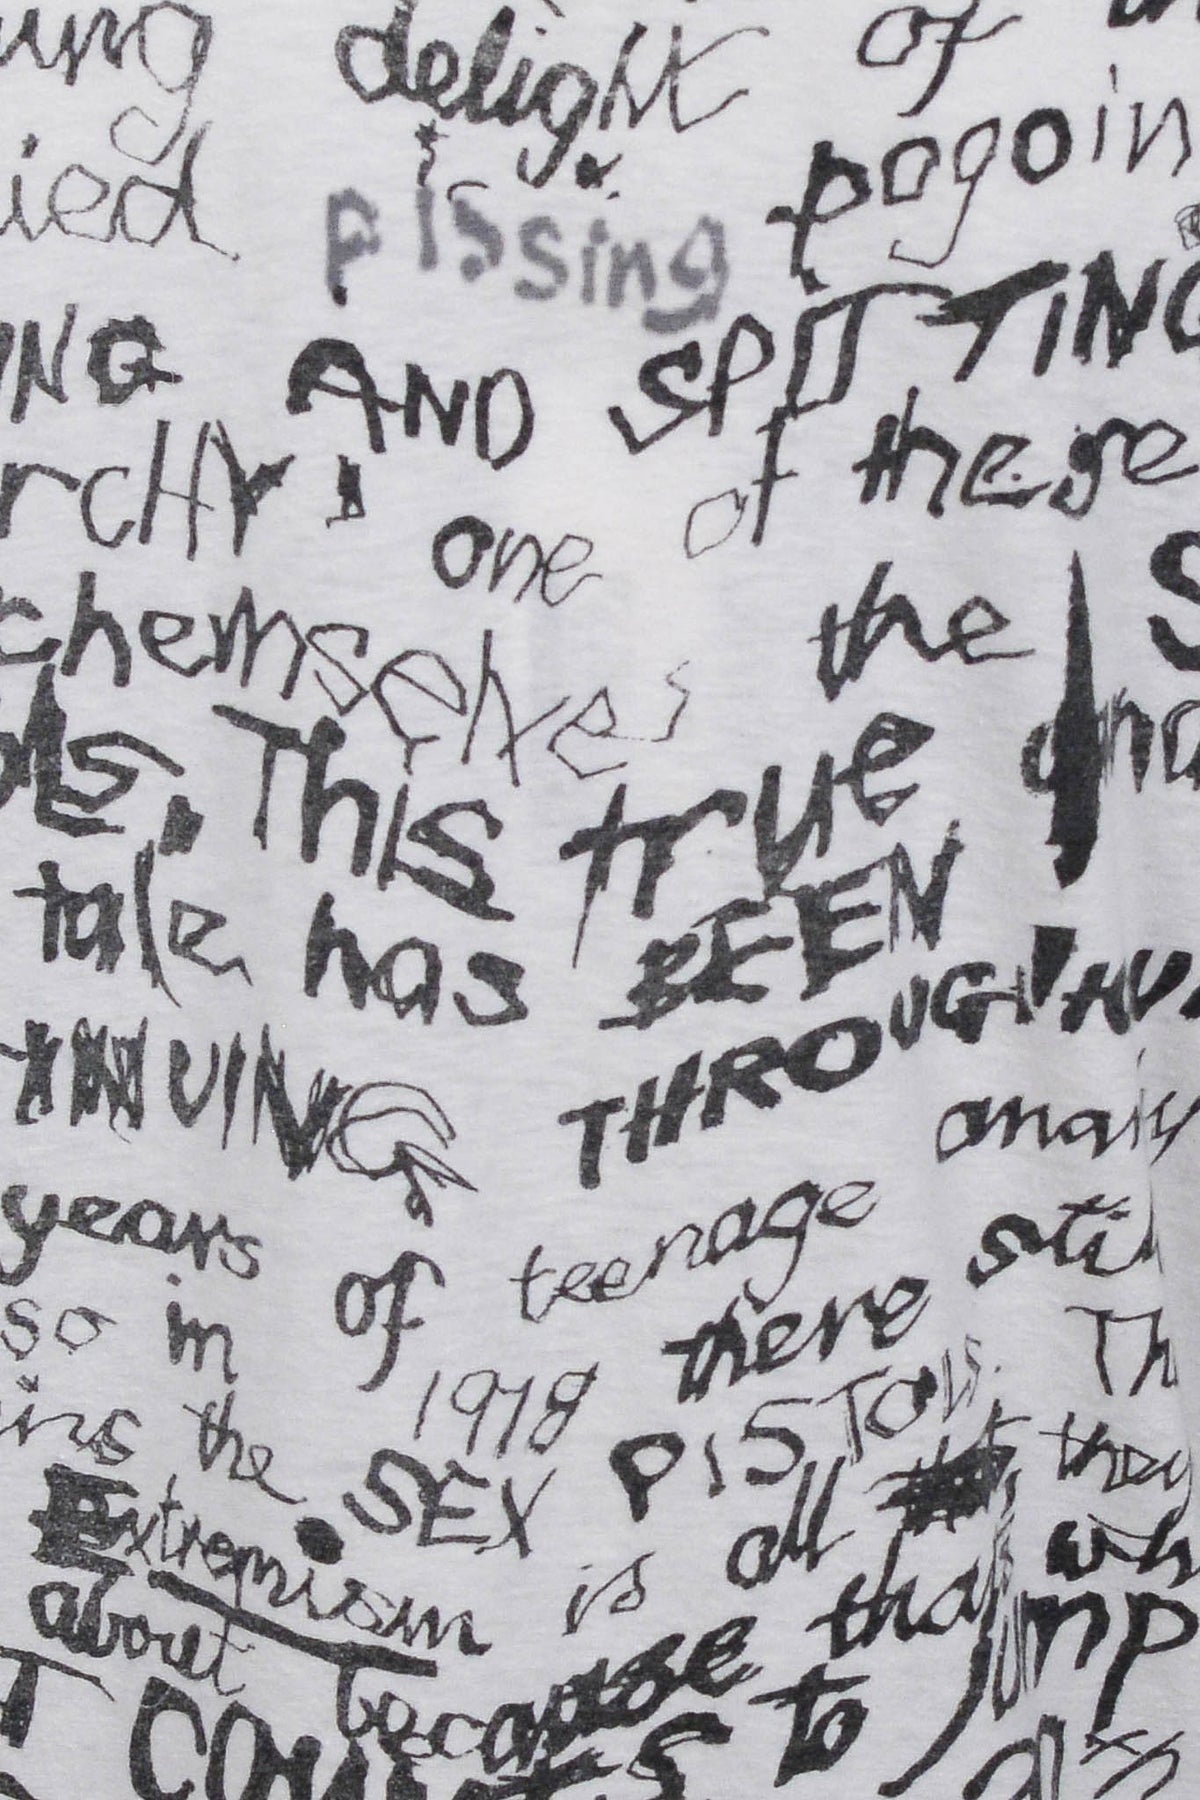 delight of
pissing pogoin
AND SPITTING
rchy' one of thege
chemselves the S
ols. This true
tale has BEEN
INUING THROUGHU
years of teenage analy
so in 1978 there stil
the SEX PISTOLS. Th
Extremism is all they
about because that wh
comes to jump